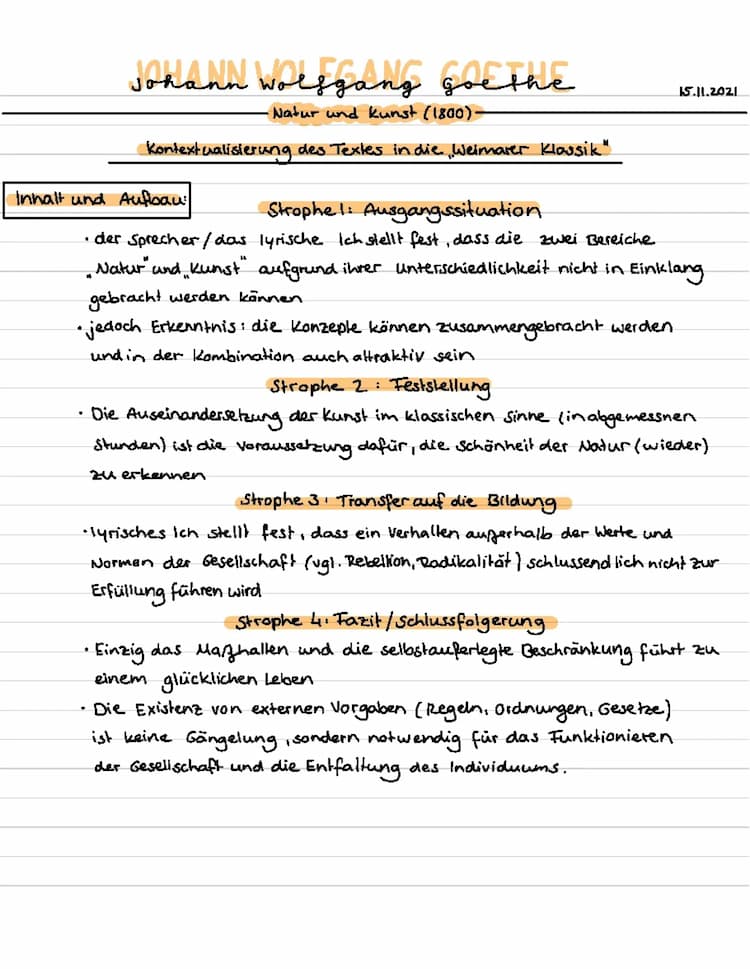 JOHANN WOLFGANG GOETHE
Johann Wolfgang Goethe
15.11.2021
Natur und Kunst (1800)
Kontextualisierung des Textes in die „Weimarer Klassik"
Inhalt und Aufbau:
Strophe 1: Ausgangssituation
· der Sprecher / das lyrische Ich stellt fest, dass die zwei Bereiche
„Natur" und „Kunst" aufgrund ihrer Unterschiedlichkeit nicht in Einklang
gebracht werden können
· jedoch Erkenntnis: die Konzepte können zusammengebracht werden
und in der Kombination auch attraktiv sein
Strophe 2: Feststellung
· Die Auseinandersetzung der Kunst im klassischen Sinne (in abgemessnen
Stunden) ist die Voraussetzung dafür, die Schönheit der Natur (wieder)
zu erkennen
Strophe 3: Transfer auf die Bildung
· lyrisches Ich stellt fest, dass ein Verhalten außerhalb der Werte und
Normen der Gesellschaft (vgl. Rebellion, Radikalität) schlussendlich nicht zur
Erfüllung führen wird
Strophe 4: Fazit/Schlussfolgerung
· Einzig das Maßhalten und die selbstauferlegte Beschränkung führt zu
einem glücklichen Leben
· Die Existenz von externen Vorgaben (Regeln, Ordnungen, Gesetze)
ist keine Gängelung, sondern notwendig für das Funktionieren
der Gesellschaft und die Entfaltung des Individuums.